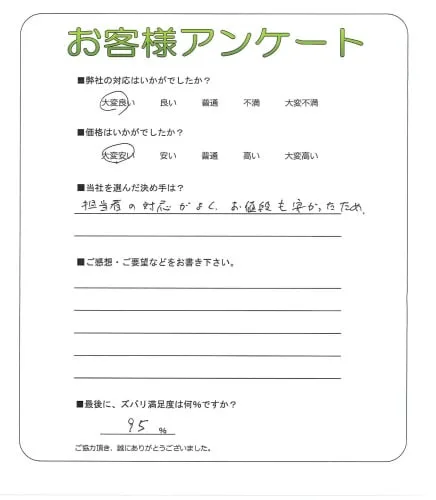 お客様アンケート
■弊社の対応はいかがでしたか?
大変良い 良い 普通 不満 大変不満
■価格はいかがでしたか?
大変安い 安い 普通 高い 大変高い
■当社を選んだ決め手は?
担当者の対応がよく、お値段も安かったため。
■ご感想・ご要望などをお書き下さい。
■最後に、ズバリ満足度は何%ですか?
95 %
ご協力頂き、誠にありがとうございました。